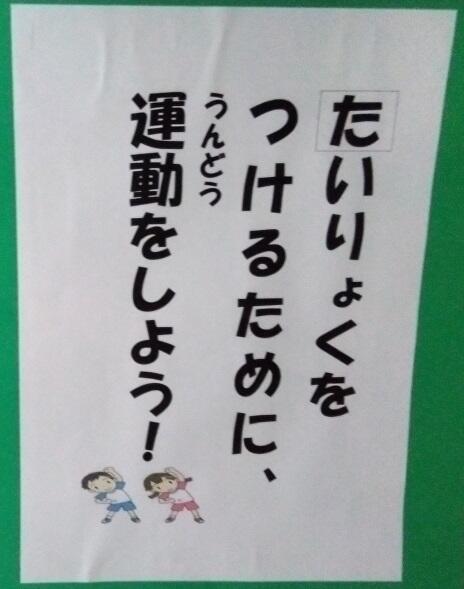 たいりょくを
つけるために、
うんどう
運動をしよう!